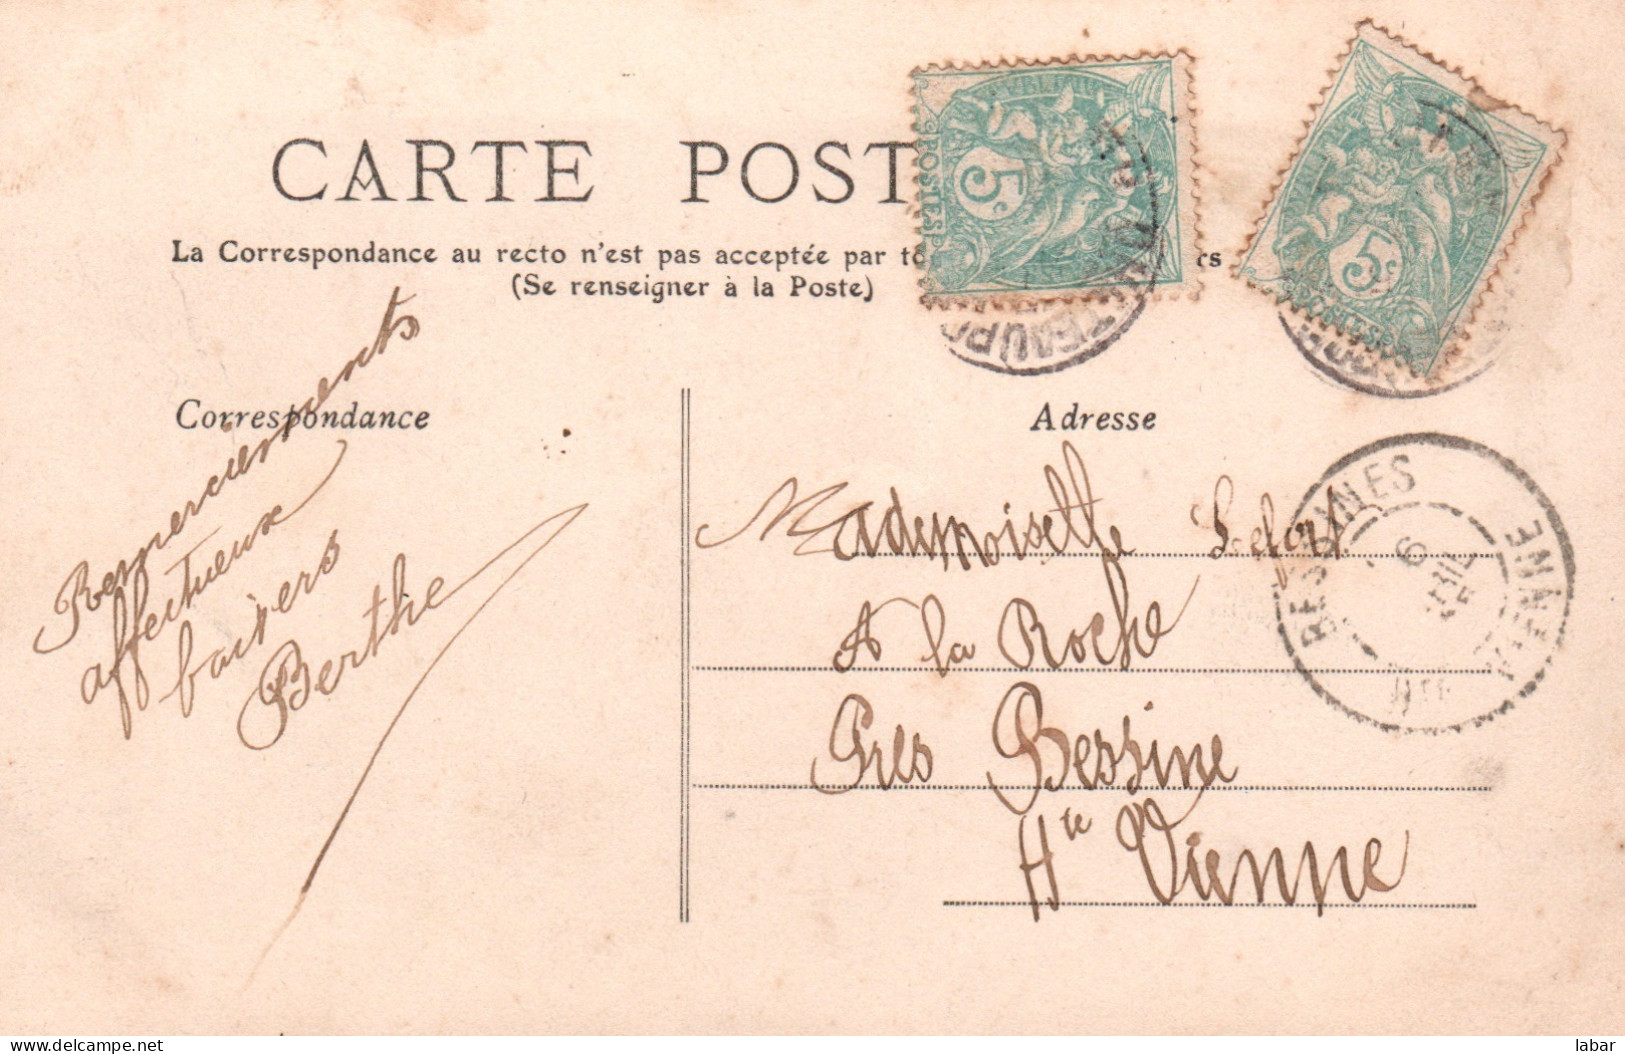 CARTE POST
La Correspondance au recto n'est pas acceptée par to
(Se renseigner à la Poste)
POSTES
5c
5c
Correspondance
Remerciements
affectueux
baisers
Berthe
Adresse
Mademoiselle
A la Roche
Pres Bessine
Hte Vienne
VIENNE
6
delcampe.net
labar